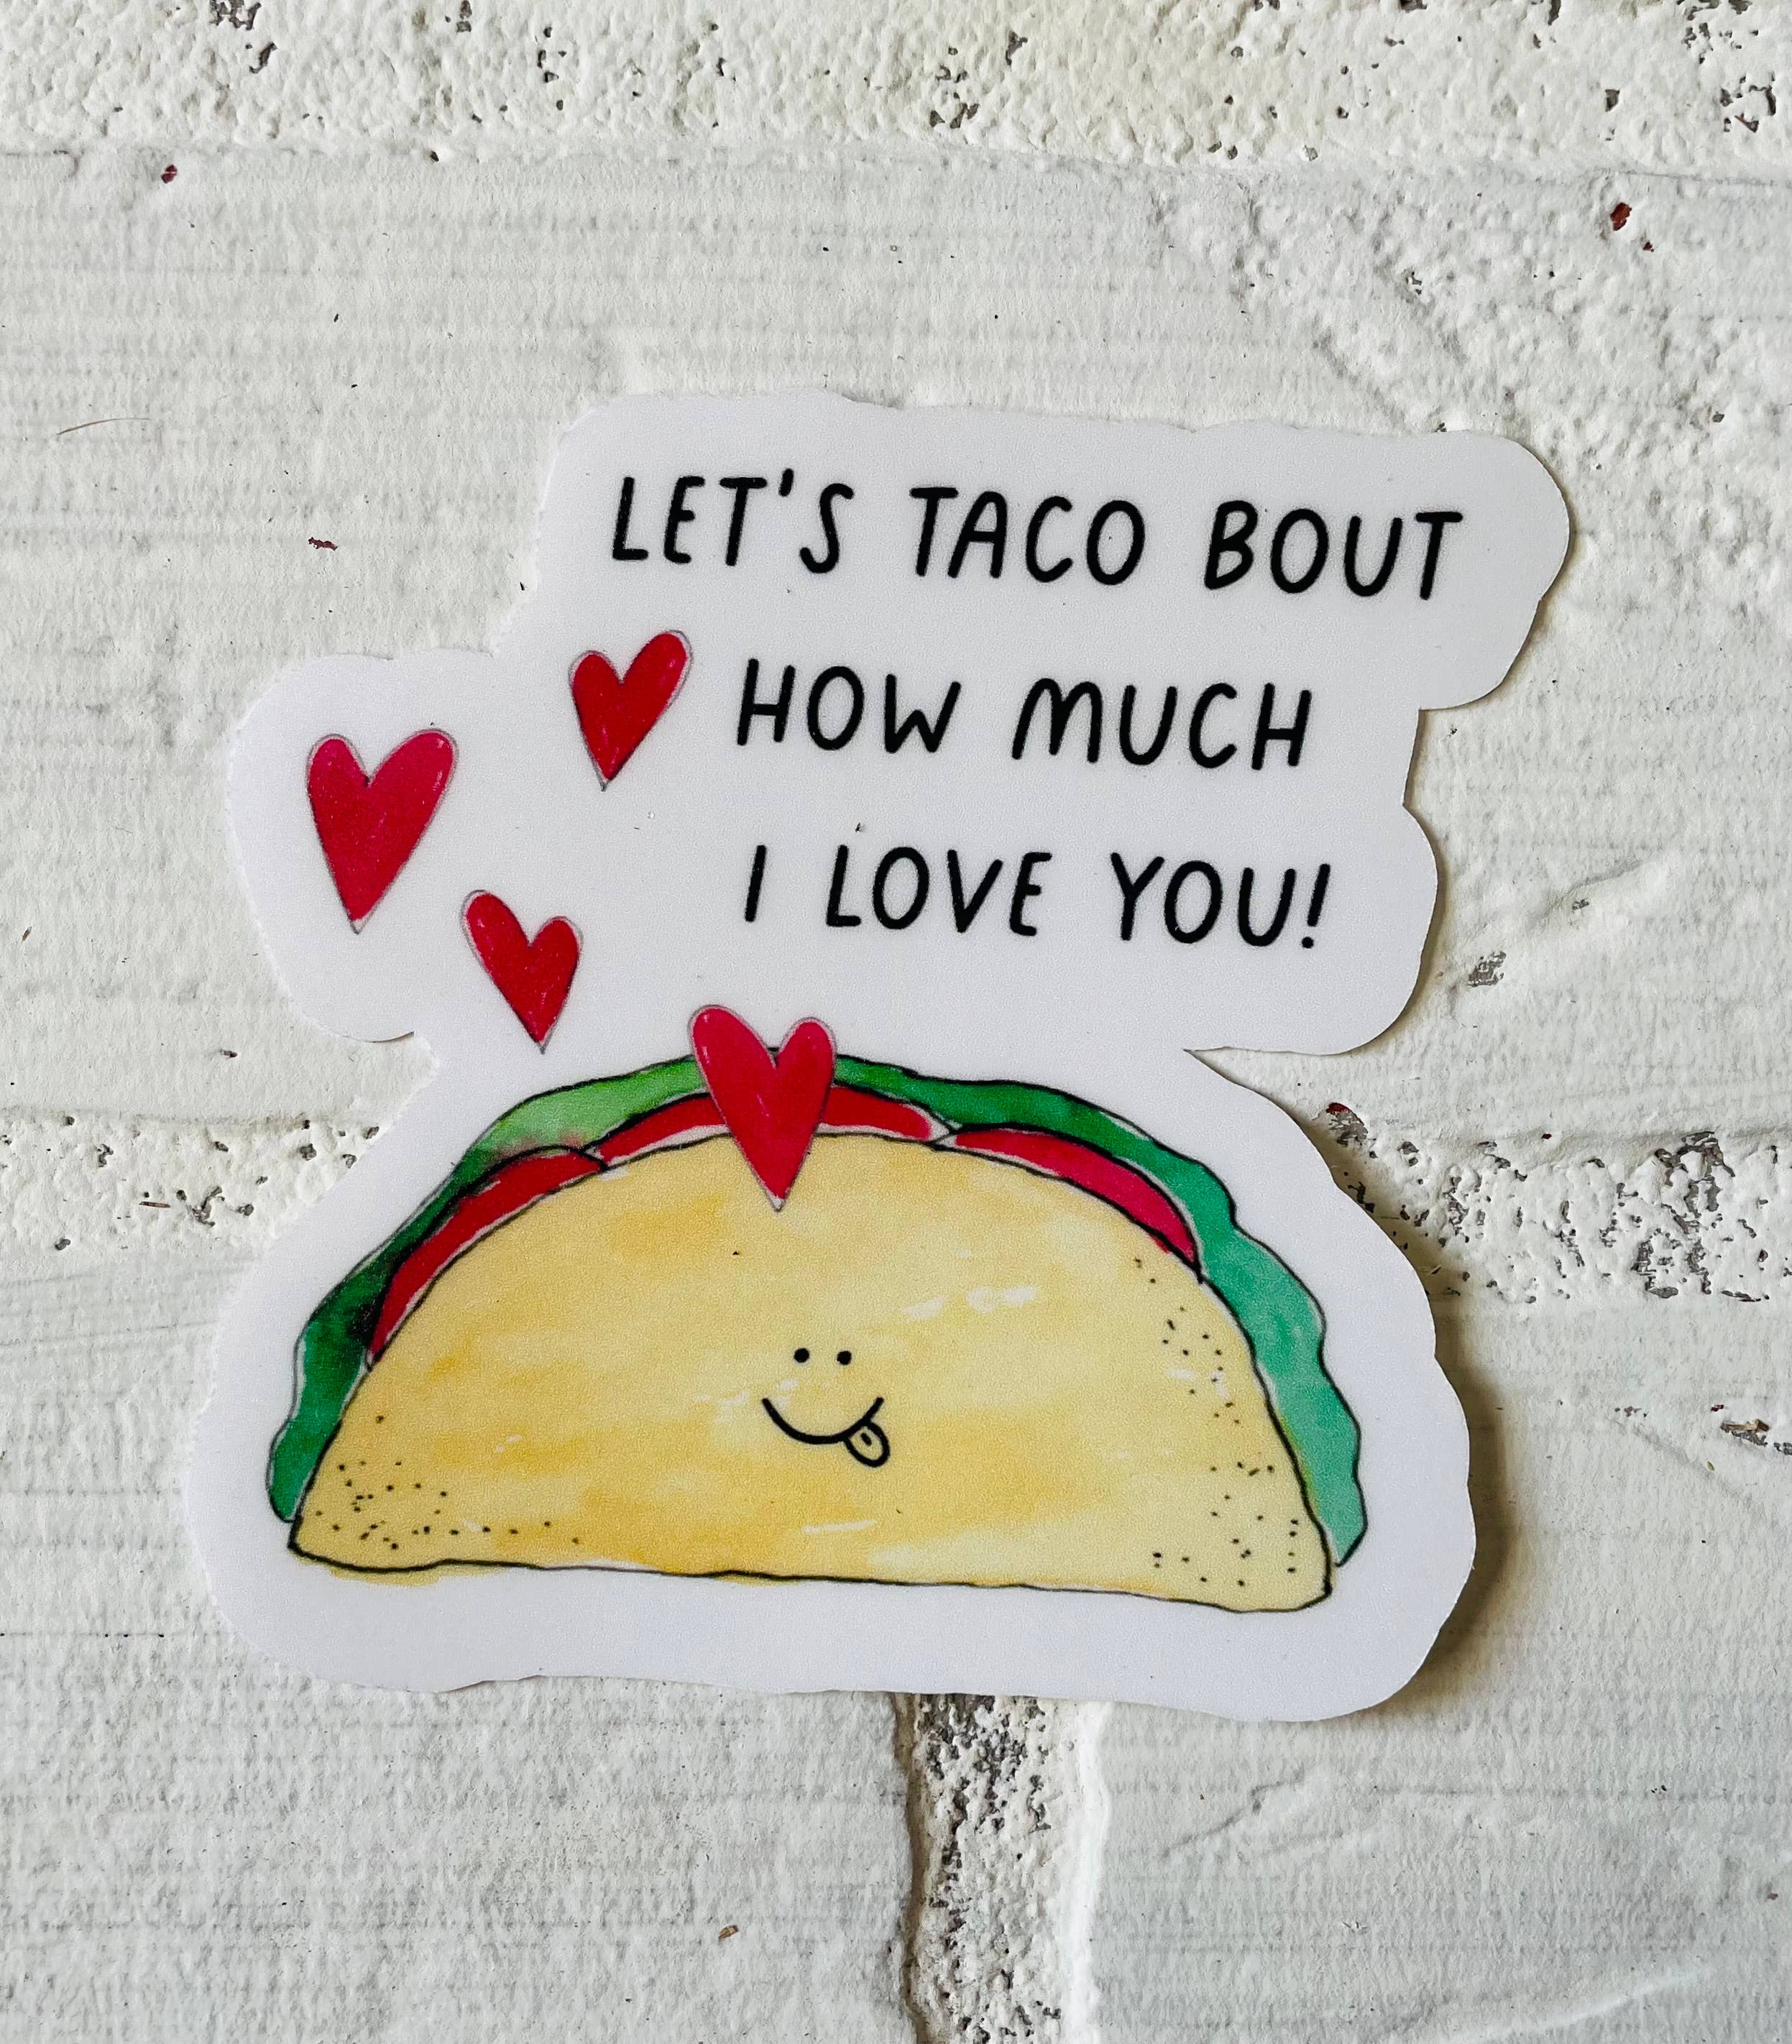 LET'S TACO BOUT
HOW MUCH
I LOVE YOU!